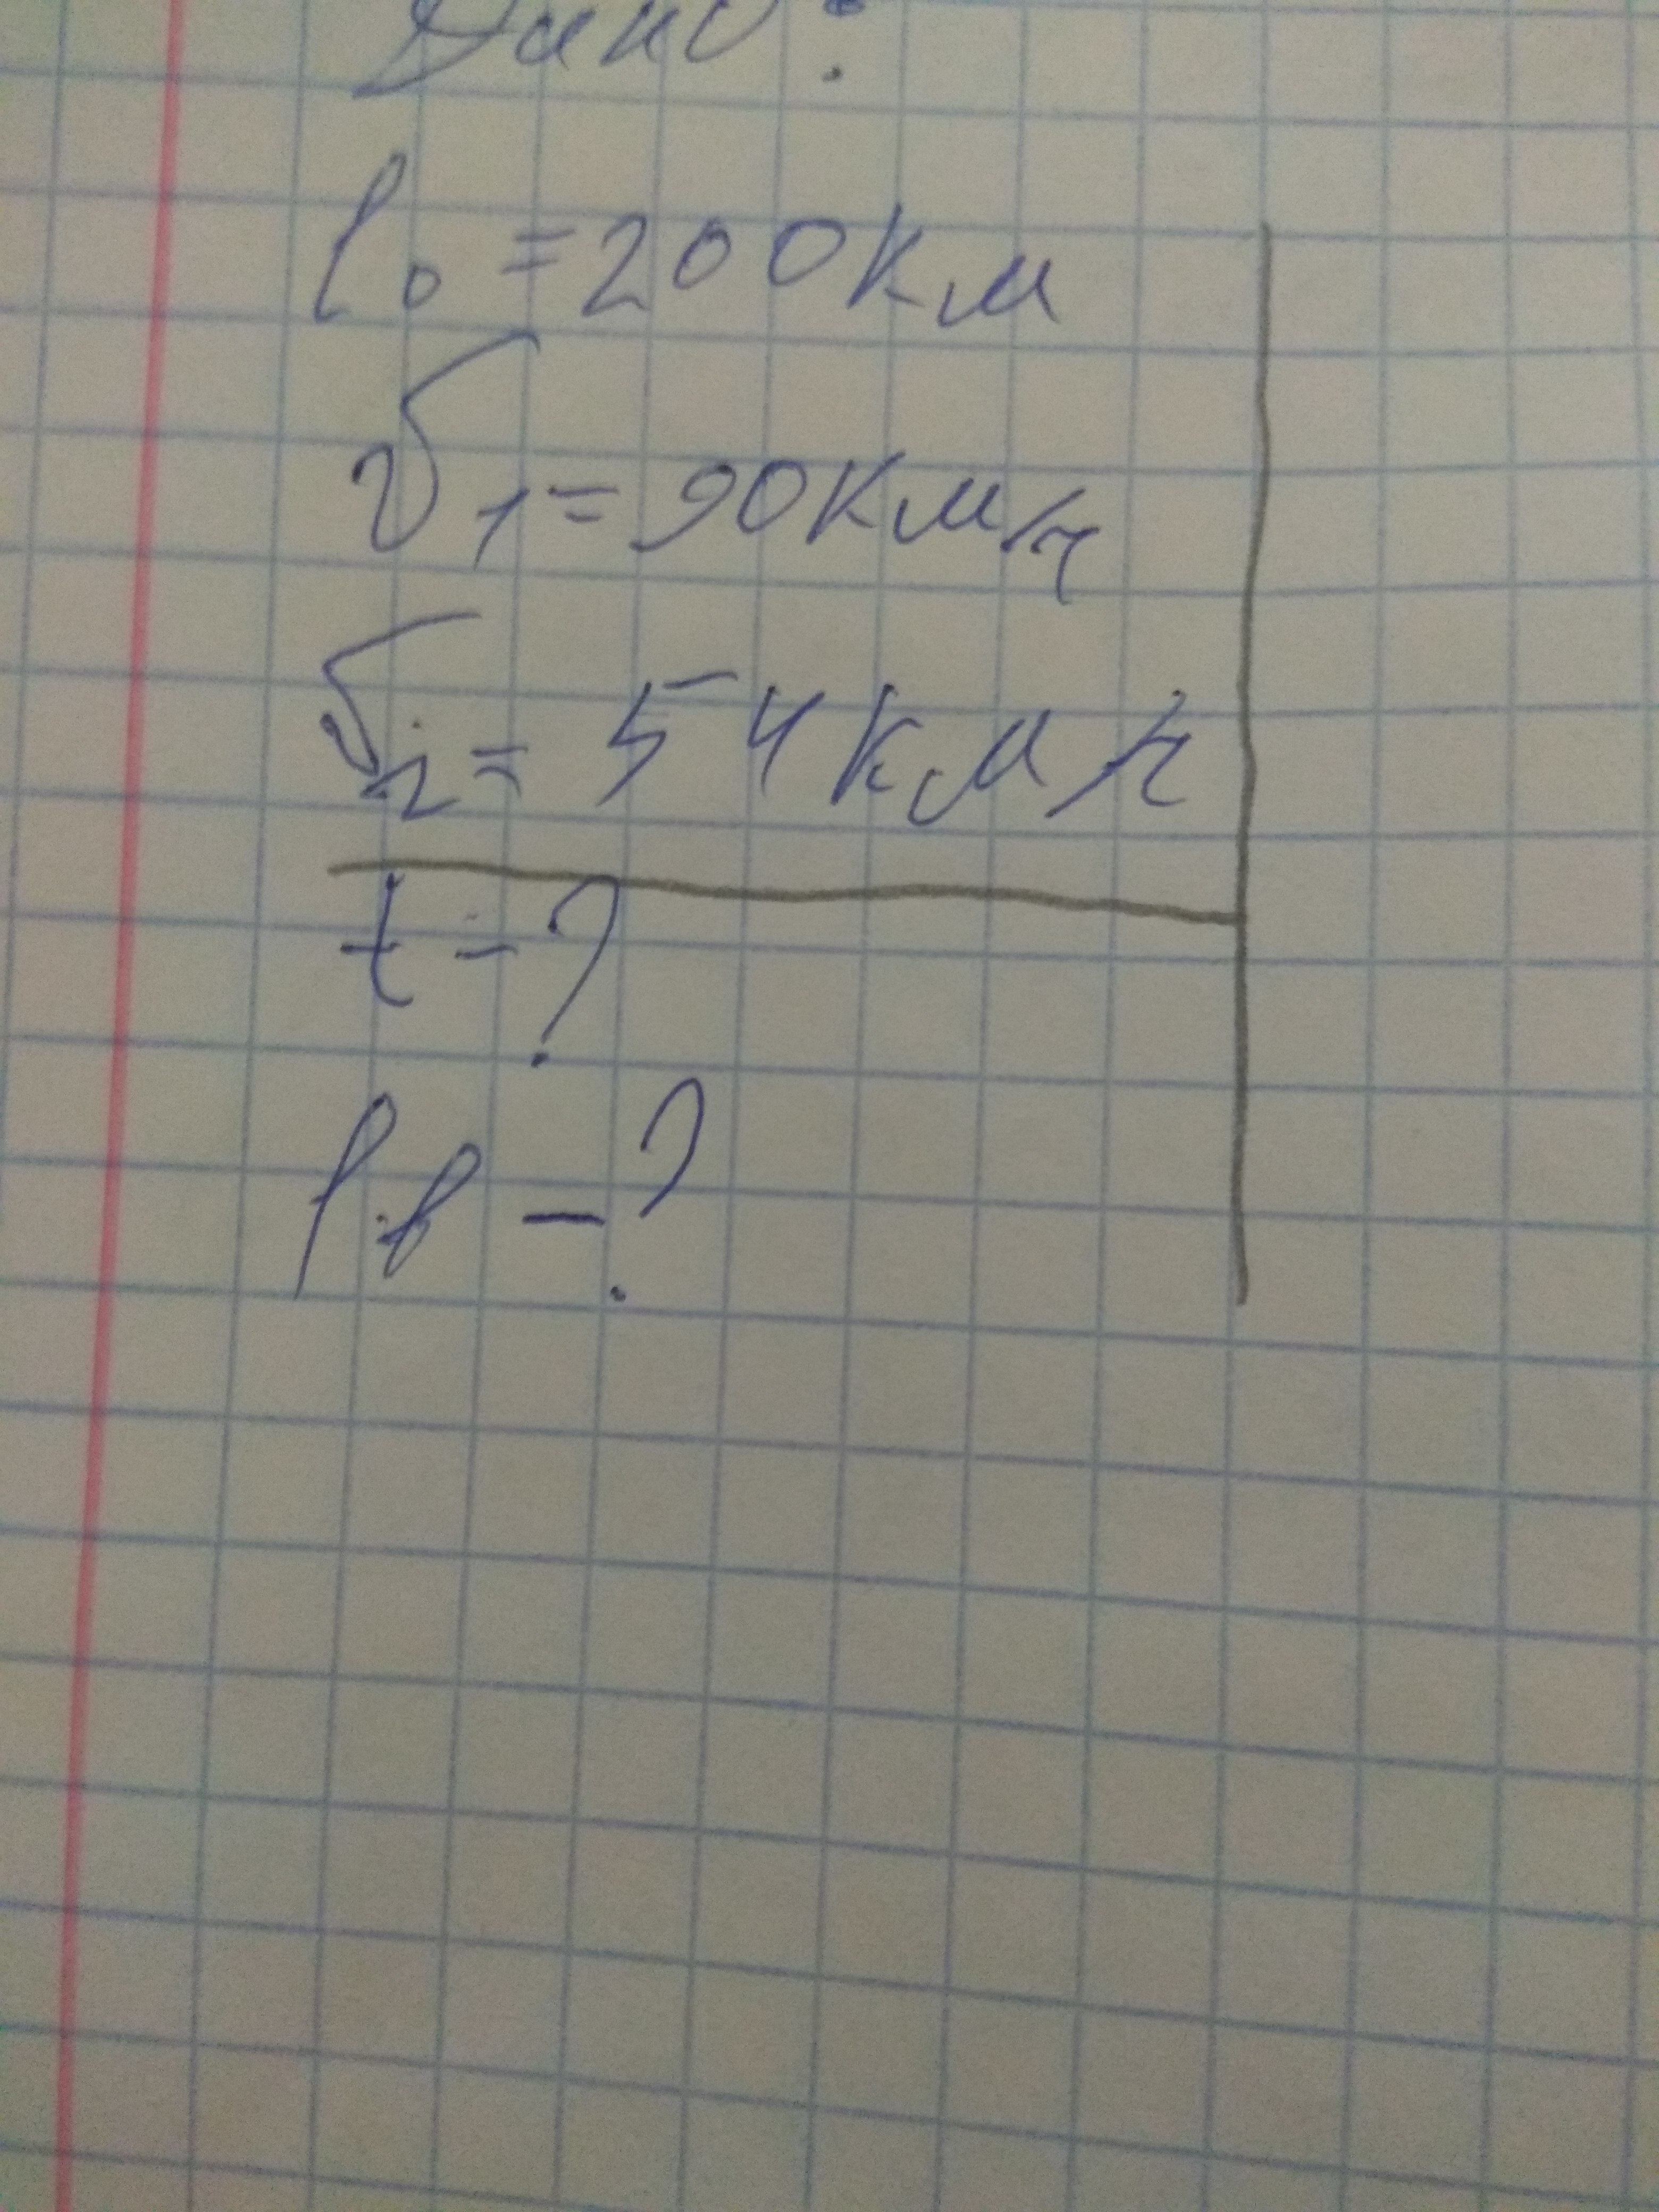 Дано:
l₀ = 200 км
v₁ = 90 км/ч
v₂ = 54 км/ч
t - ?
lв - ?